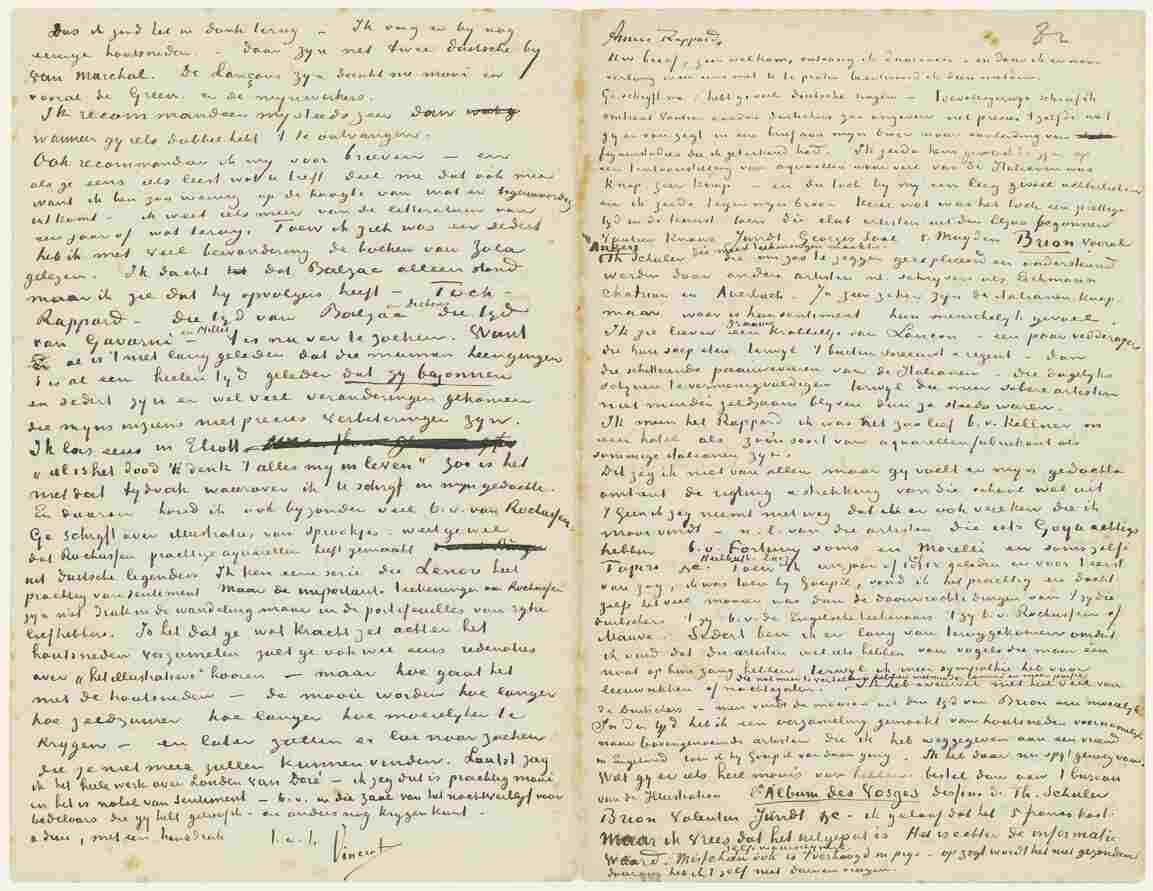 dus ik zend het in dank terug – Ik voeg er by nog
eenige houtsneden. – daar zyn net twee duitsche by
van Marchal. De Lançons zyn dunkt me mooi en
vooral de Green. en de mynwerkers.
Ik recommandeer my steeds zeer dan
wanneer gy iets dubbel hebt 't te ontvangen.
Ook recommandeer ik my voor brieven – en
als ge eens iets leest wat u treft deel me dat ook mee
want ik ben zoo weinig op de hoogte van wat er tegenwoordig
uitkomt – ik weet iets meer van de litteratuur van
een jaar of wat terug. Toen ik ziek was en sedert
heb ik met veel bewondering de boeken van Zola
gelezen. Ik dacht dat Balzac alleen stond
maar ik zie dat hy opvolgers heeft – Toch –
Rappard – die tyd van Balzac en Dickens die tyd
van Gavarni en Millet – 't is nu ver te zoeken. Want
al is 't niet lang geleden dat die mannen heengingen
't is al een heelen tyd geleden dat zy begonnen
en sedert zyn er wel veel veranderingen gekomen
die myns inziens niet precies verbeteringen zyn.
Ik las eens in Eliott
„al is het dood 'k denk 't alles my in leven” zoo is het
met dat tydvak waarover ik u schryf in myn gedachte.
En daarom houd ik ook byzonder veel b.v. van Rochussen.
Ge schryft over illustraties van sprookjes – weet ge wel
dat Rochussen prachtige aquarellen heeft gemaakt
uit duitsche legenden Ik ken eene serie die Lenore heet
prachtig van sentiment Maar de importante teekeningen van Rochussen
zyn niet druk in de wandeling maar in de portefeuilles van ryke
liefhebbers. Is het dat ge wat kracht zet achter het
houtsneden verzamelen zult ge ook wel eens redenaties
over „het illustratieve” hooren – maar hoe gaat het
met de houtsneden – de mooie worden hoe langer
hoe zeldzamer hoe langer hoe moeielyker te
krygen – en later zullen er lui naar zoeken
die ze niet meer zullen kunnen vinden. Laatst zag
ik het heele werk over Londen van Doré – ik zeg dat is prachtig mooi
en het is nobel van sentiment – b.v. in die zaal van het nachtverblyf voor
bedelaars die gy hebt geloof ik – en anders nog krygen kunt –
adieu, met een handdruk t. à. t. Vincent
Amice Rappard,
Uw brief, zeer welkom, ontving ik daareven – en daar ik er naar
verlang weer eens met U te praten beantwoord ik dien meteen.
Ge schryft me hebt ge veel duitsche zaken – Toevalligerwys schreef ik
omtrent Vautier en andere duitschers zoo ongeveer net precies 't zelfde wat
gy er van zegt in een brief aan myn broer naar aanleiding van
figuurstudies die ik geteekend had. Ik zeide hem geweest te zyn op
een tentoonstelling van aquarellen waar veel van de Italianen was
Knap zeer knap – en die toch by my een leeg gevoel achterlieten
en ik zeide tegen myn broer kerel wat was het toch een prettige
tyd in de kunst toen die club artisten uit den Elzas begonnen
Vautier Knaus Jundt Georges Saal v. Muyden Brion vooral
Anker & Th. Schuler die meest teekeningen maakte die om zoo te zeggen geexpliceerd en ondersteund
werden door andere artisten nl. schryvers als Erckmann
Chatrian en Auerbach. Ja zeer zeker zyn de Italianen knap
maar waar is hun sentiment hun menschelyk gevoel.
Ik zie liever een graauw krabbeltje van Lançon – een paar voddenrapers
die hun soep eten terwyl 't buiten sneeuwt & regent – dan
die schitterende paauweveeren van de Italianen – die dagelyks
schynen te vermenigvuldigen terwyl die meer sobere artisten
niet minder zeldzaam blyven dan ze steeds waren.
Ik meen het Rappard ik was net zoo lief b.v. kellner in
een hotel als zoon soort van aquarellenfabrikant als
sommige italianen zyn.
Dit zeg ik niet van allen maar gy voelt er myn gedachte
omtrent de rigting & strekking van die school wel uit
't Geen ik zeg neemt niet weg dat ik er ook veel ken die ik
mooi vindt – n.l. van die artisten die iets Goya achtigs
hebben b.v. Fortuny soms en Morelli en soms zelfs
Tapiro &c. Heilbuth Duez Toen ik een jaar of 10 geleden ze voor 't eerst
van zag, ik was toen by Goupil, vond ik het prachtig en dacht
zelfs het veel mooier was dan de doorwrochte dingen van 't zy die
duitschers 't zy b.v. de Engelsche teekenaars 't zy b.v. Rochussen of
Mauve. Sedert ben ik er lang van teruggekomen omdat
ik vind dat die artisten wel iets hebben van vogels die maar een
noot op hun zang hebben terwyl ik meer sympathie heb voor
leeuwrikken of nachtegalen die met min of meer passie. Ik heb evenwel niet heel veel van
de duitschers – meer vindt de mooie uit den tyd van Brion ook moeielyk
In den tyd heb ik een verzameling gemaakt van houtsneden voornamelyk
naar bovengenoemde artisten die ik heb weggegeven aan een vriend
in Engeland toen ik by Goupil vandaan ging. Ik heb daar nu spyt genoeg van.
Wilt gy er iets heel moois van hebben bestel dan aan 't bureau
van de Illustration l'Album des Vosges dessins de Th. Schuler
Brion Valentin Jundt &c – ik geloof dat het 5 francs kost.
maar ik vrees dat het uitgeput is Het is echter de informatie
waard. Misschien ook is 't zelfs waarschynlyk verhoogd in prys – op zigt wordt het niet gezonden
daarom heb ik 't zelf niet durven vragen.